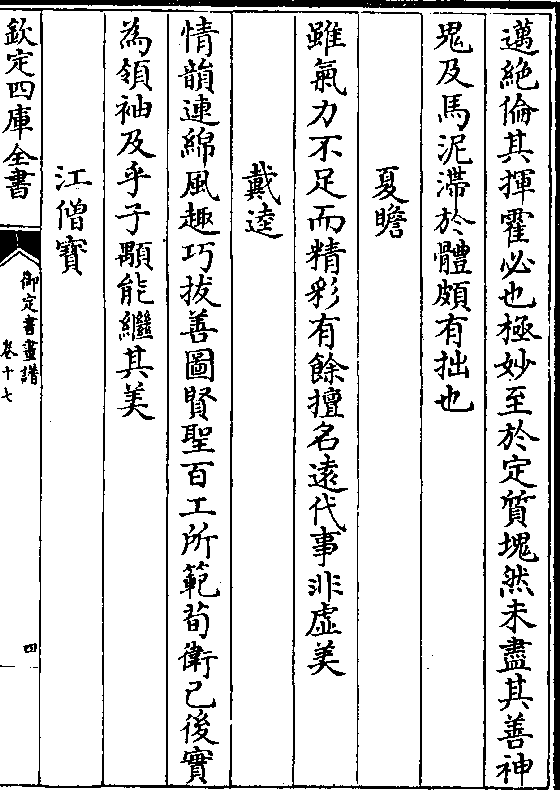 邁絶倫其揮霍必也極妙至於定質塊然未盡其善神
鬼及馬泥滯於體頗有拙也
夏瞻
雖氣力不足而精彩有餘擅名遠代事非虚美
戴逵
情韻連綿風趣巧拔善圖賢聖百工所範荀衛已後實
為領袖及乎子顒能繼其美
江僧寳
欽定四庫全書
御定書畫譜
卷十七
四